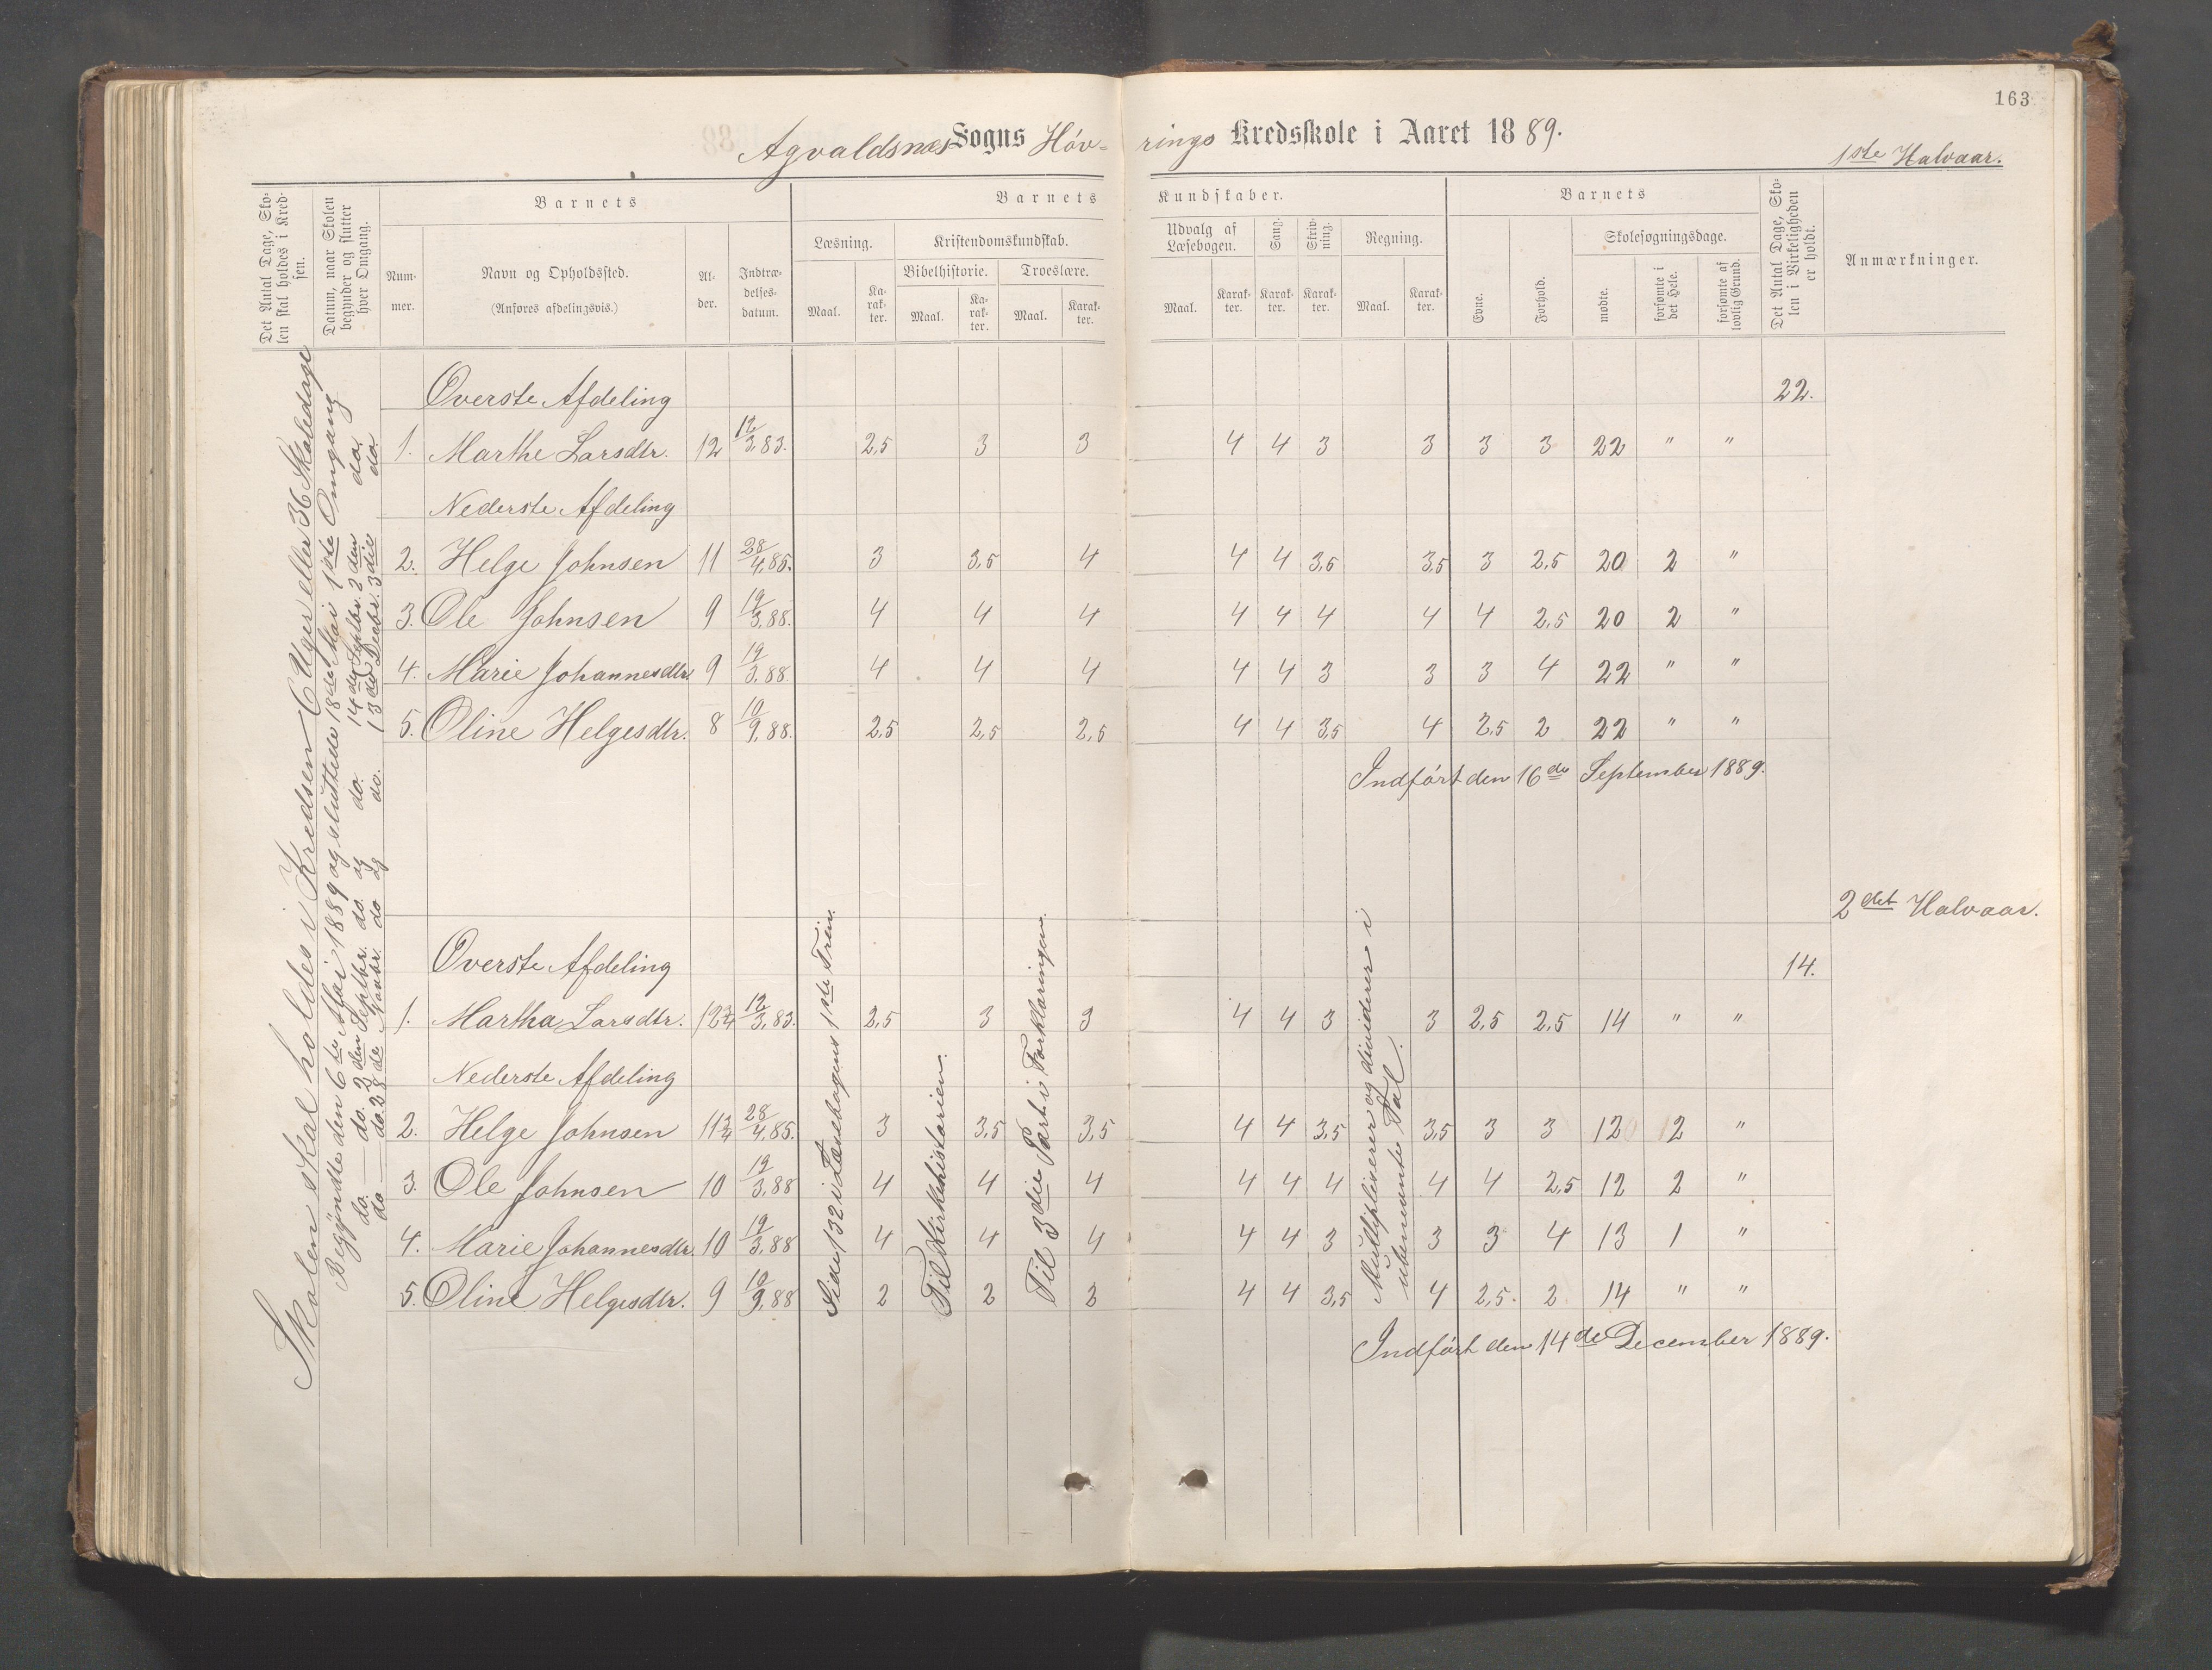 163
Agvaldsnes Sogns Höv- rings Kredsskole i Aaret 1889.
1ste Halvaar.
Det Antal Dage, Sko-
len skal holdes i Kred-
sen.
Datum, naar Skolen
begynder og slutter
hver Omgang.
Barnets
Num-
mer.
Navn og Opholdssted.
(Anføres afdelingsvis.)
Al-
der.
Indtræ-
delses-
datum.
Barnets Kundskaber.
Læsning.
Maal.
Ka-
rak-
ter.
Kristendomskundskab.
Bibelhistorie.
Maal.
Ka-
rak-
ter.
Troeslære.
Maal.
Karak-
ter.
Udvalg af
Læsebogen.
Maal.
Karak-
ter.
Sang.
Karak-
ter.
Skriv-
ning.
Karak-
ter.
Regning.
Maal.
Karak-
ter.
Barnets
Evne.
Forhold.
Skolesøgningsdage.
mødte.
forsømte i
det Hele.
forsømte af
lovlig Grund.
Det Antal Dage, Sko-
len i Virkeligheden
er holdt.
Anmærkninger.
Skolen skal holdes i Kredsen 6 Uger eller 36 Skoledage
Begyndte den 6te Mai 1889 og sluttede 18de Mai 1ste Omgang
do. — do. 2den Septbr. do. og do. 14de Septbr. 2den do.
do — do. 28de Novbr. do og do. 13de Decbr. 3die do.
Øverste Afdeling 22.
1. Marthe Larsdtr. 12 12/3,83. 2,5 3 3 4 4 3 3 3 3 22 " "
Nederste Afdeling
2. Helge Johnsen 11 28/4,85. 3 3,5 4 4 4 3,5 3,5 3 2,5 20 2 "
3. Ole Johnsen 9 19/3,88. 4 4 4 4 4 4 4 4 2,5 20 2 "
4. Marie Johannesdtr. 9 19/3,88. 4 4 4 4 4 3 3 3 4 22 " "
5. Oline Helgesdtr. 8 10/9,88. 2,5 2,5 2,5 4 4 3,5 4 2,5 2 22 " "
Indført den 16de September 1889.
2det Halvaar.
Øverste Afdeling 14.
1. Martha Larsdtr. 12¾ 12/3,83. 2,5 3 3 4 4 3 3 2,5 2,5 14 " "
Nederste Afdeling
2. Helge Johnsen 11¾ 28/4,85. 3 3,5 3,5 4 4 3,5 3,5 3 3 12 2 "
3. Ole Johnsen 10 19/3,88 4 4 4 4 4 4 4 4 2,5 12 2 "
4. Marie Johannesdtr. 10 19/3,88 4 4 4 4 4 3 3 3 4 13 1 "
5. Oline Helgesdtr. 9 10/9,88 2 2 2 4 4 3,5 4 2,5 2 14 " "
Side 132 i Læsebogens 1ste Trin.
Til Kirkehistorien.
Til 3die Part i Forklaringen.
Multipliserer og dividerer i
ubenævnte Tal.
Indført den 14de December 1889.